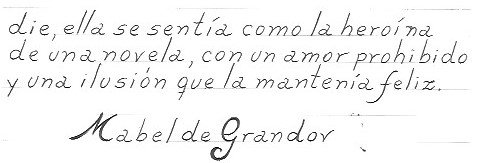 die, ella se sentía como la heroína
de una novela, con un amor prohibido
y una ilusión que la mantenía feliz.
Mabel de Grandov